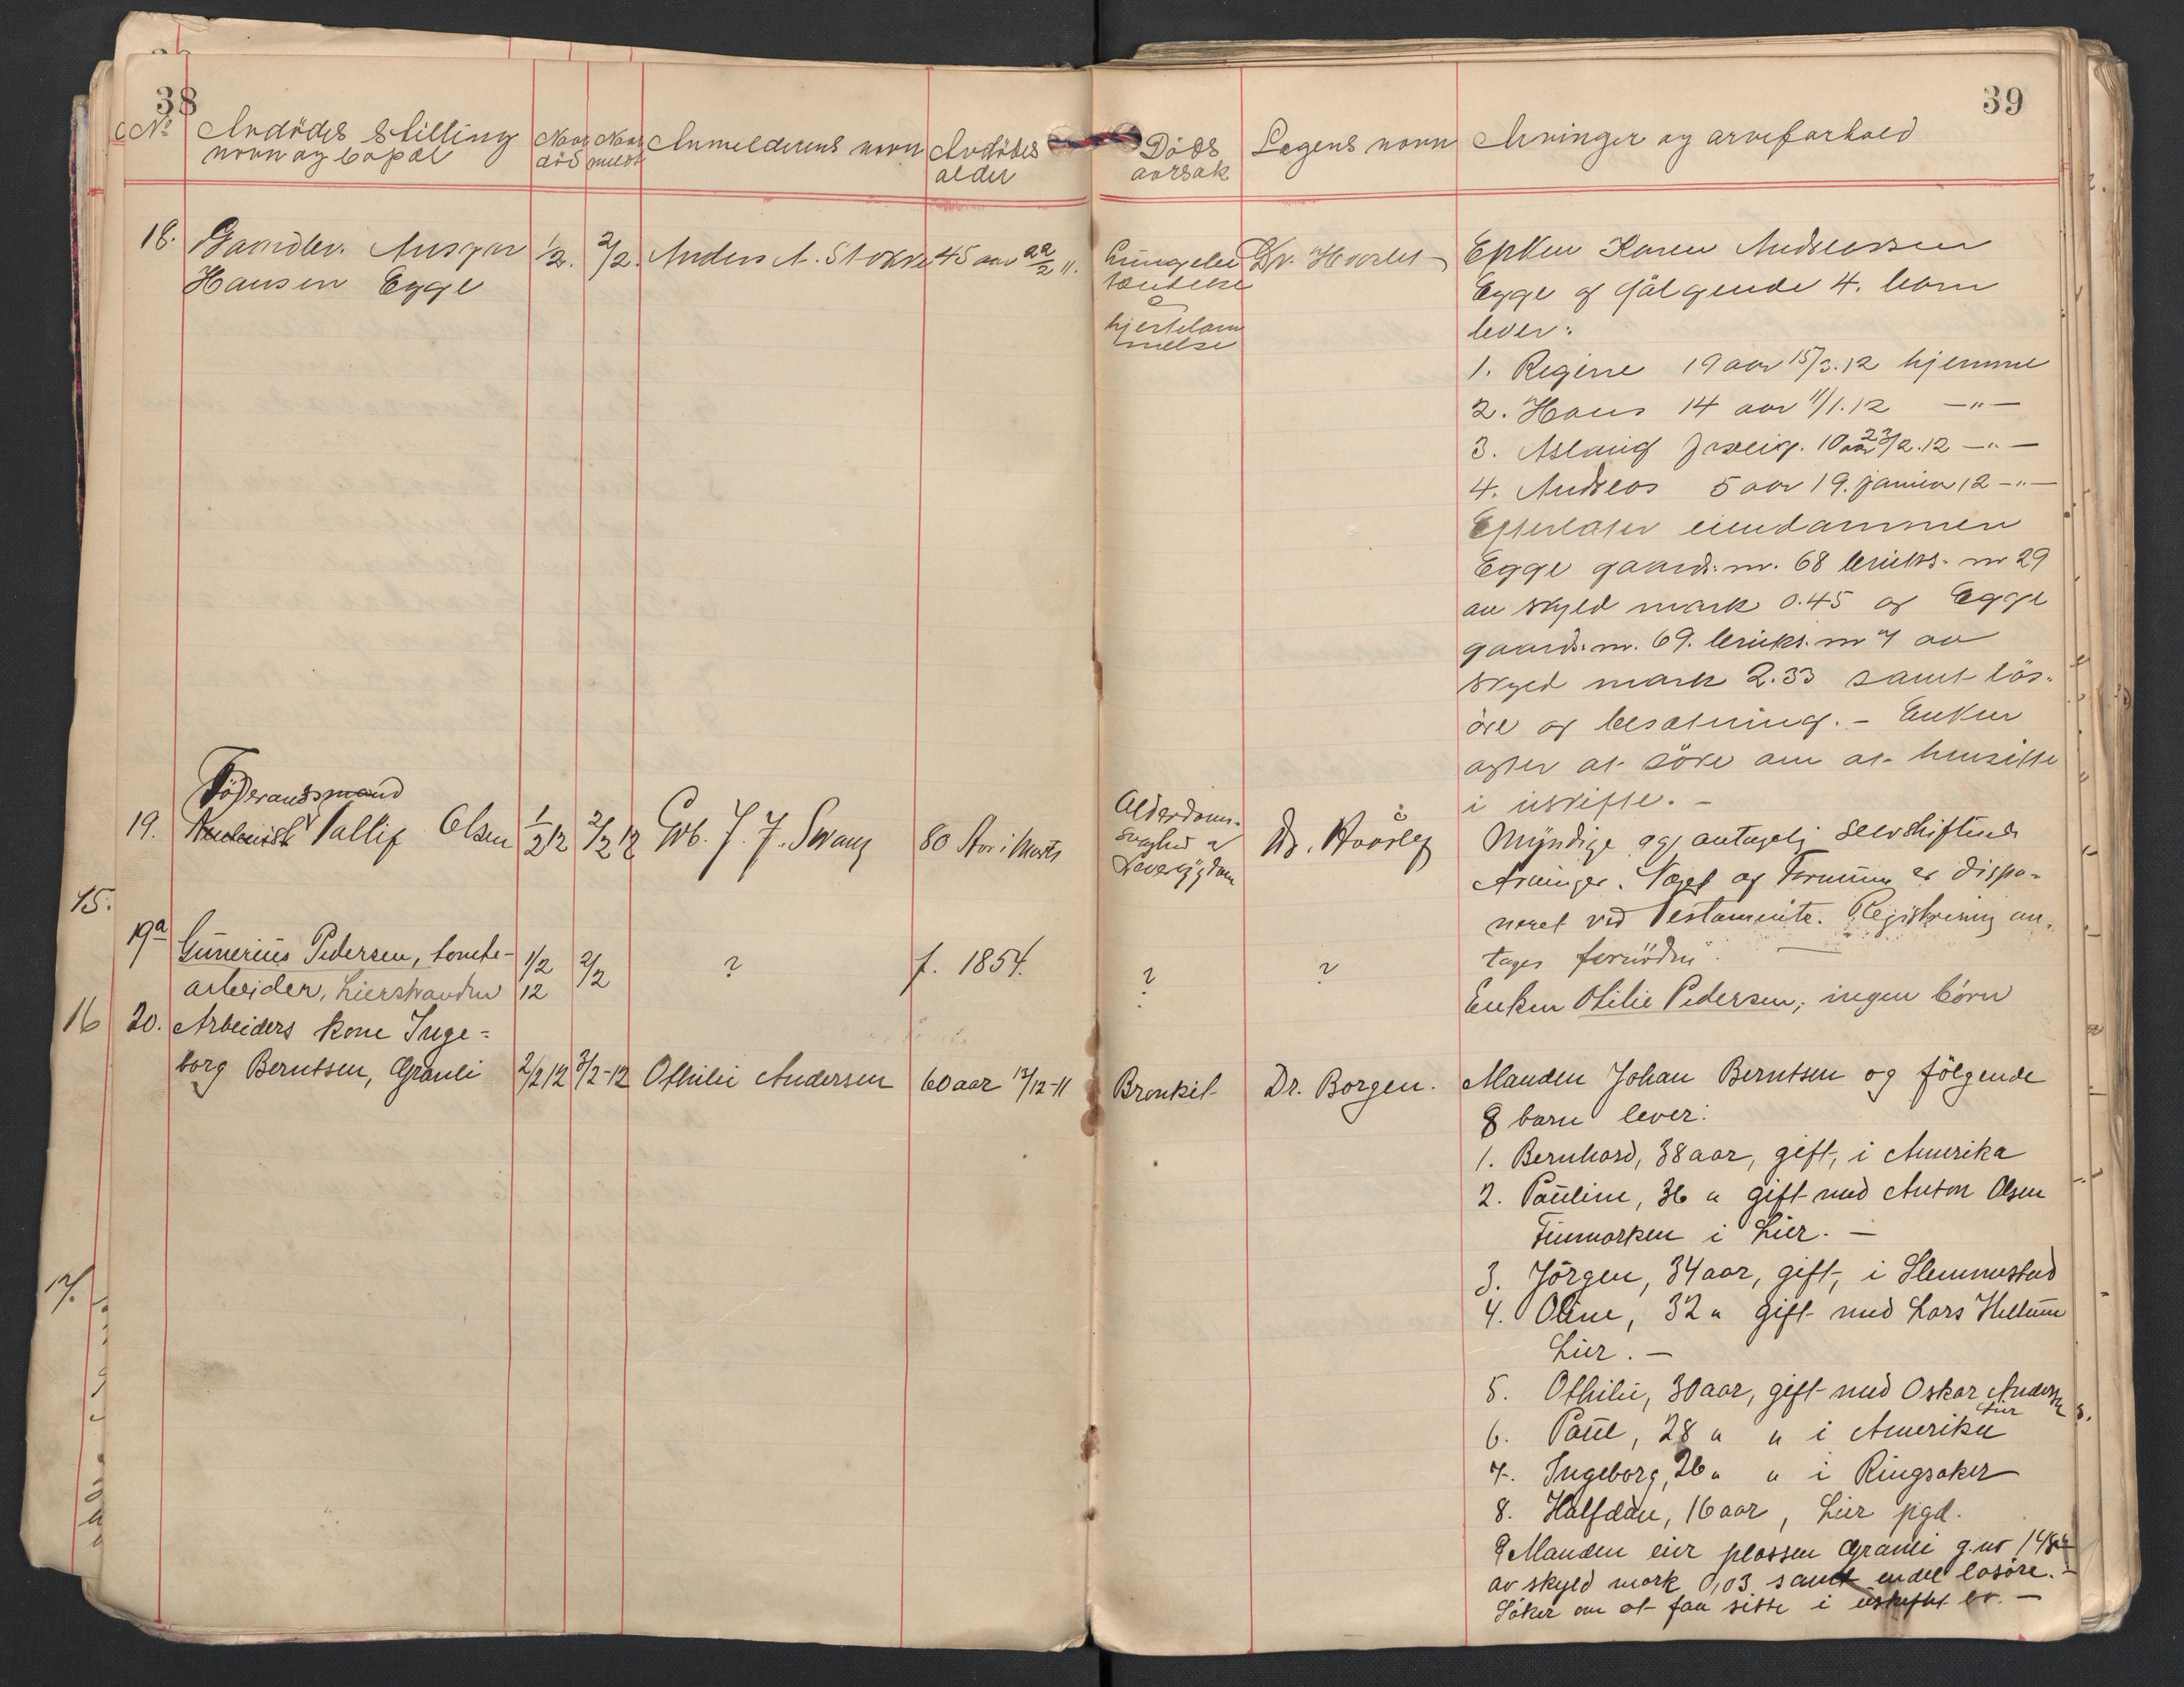 38
No Avdödes stilling
navn og bopæl
Naar
död
Naar
meldt
Anmelderens navn
Avdödes
alder
18. Gaardbr.
Hansen Egge
1/2.
2/2.
Anders A.
45 aar 22/2 11.
Föderaadsmand
19. Olsen
1/2 12
2/2 12
80 Aar i Marts
15.
19a
Gunerius Pedersen, tomte-
arbeider, Lierstranden
1/2
12
2/2
?
f. 1854.
16
20. Arbeiders kone Inge-
borg Berntsen, Granli
2/2 12
3/2-12
Othilie Andersen
60 aar 12/12-11
17.
39
Döds
aarsak
Lægens navn
Arvinger og arveforhold
Lungebe
tændelse
o
hjertelam
melse
Dr.
Enken Karen Andreassen
Egge og följgende 4. barn
lever:
1. Regine 19 aar 15/3.12 hjemme
2. Hans 14 aar 11/1.12 —"—
3. Aslaug 10 aar 23/2.12 —"—
4. Andreas 5 aar 19. januar 12 —"—
Efterlater eiendommen
Egge gaards. nr. 68 bruks. nr 29
av skyld mark 0.45 og Egge
gaards. nr. 69. bruks. nr 7 av
skyld mark 2.33 samt lös-
öre og besætning. – Enken
agter at söke om at hensitte
i uskifte. –
Alderdoms-
svaghed &
Leversygdom
Dr.
Myndige og antagelig selvskiftende
Arvinger. Noget af Formuen er dispo-
neret ved Testamente. Registrering an-
tages fornöden.
?
?
Enken Otilie Pedersen; ingen börn
Bronkit
Dr. Borgen.
Manden Johan Berntsen og fölgende
8 barn lever:
1. Bernhard, 38 aar, gift, i Amerika
2. Pauline, 36 " gift med Anton Olsen
Finmarken i Lier. —
3. Jörgen, 34 aar, gift, i Slemmestad
4. Oline, 32 " gift med Lars Hellum
Lier. —
5. Othilie, 30 aar, gift med Oskar Andersen
Lier
6. Paul, 28 " " i Amerika
7. Ingeborg, 26 " " i Ringsaker
8. Halfdan, 16 aar, Lier pgd.
Manden eier plassen Granli g.nr
av skyld mark 0,03 samt endel lösöre. —
Söker om at faa sitte i uskiftet bo. —